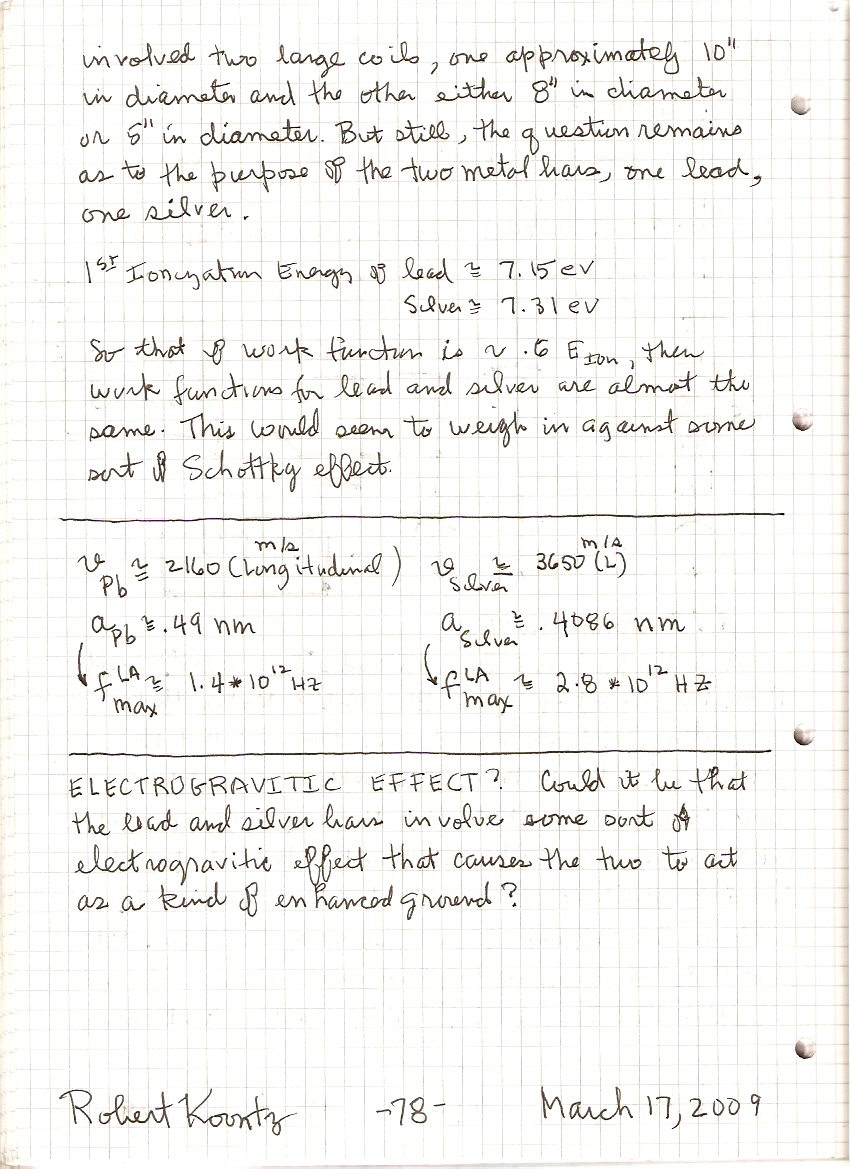 involved two large coils, one approximately 10"
in diameter and the other either 8" in diameter
or 5" in diameter. But still, the question remains
as to the purpose of the two metal bars, one lead,
one silver.
1st Ionization Energy of lead ≅ 7.15 eV
Silver ≅ 7.31 eV
So that if work function is ~ .6 E_Ion, then
work functions for lead and silver are almost the
same. This would seem to weigh in against some
sort of Schottky effect.
v_Pb ≅ 2160 m/s (Longitudinal) v_Silver ≅ 3650 m/s (L)
a_Pb ≅ .49 nm a_Silver ≅ .4086 nm
↳ f_max^LA ≅ 1.4 * 10^12 HZ ↳ f_max^LA ≅ 2.8 * 10^12 HZ
ELECTROGRAVITIC EFFECT? Could it be that
the lead and silver bars involve some sort of
electrogravitic effect that causes the two to act
as a kind of enhanced ground?
Robert Koontz -78- March 17, 2009